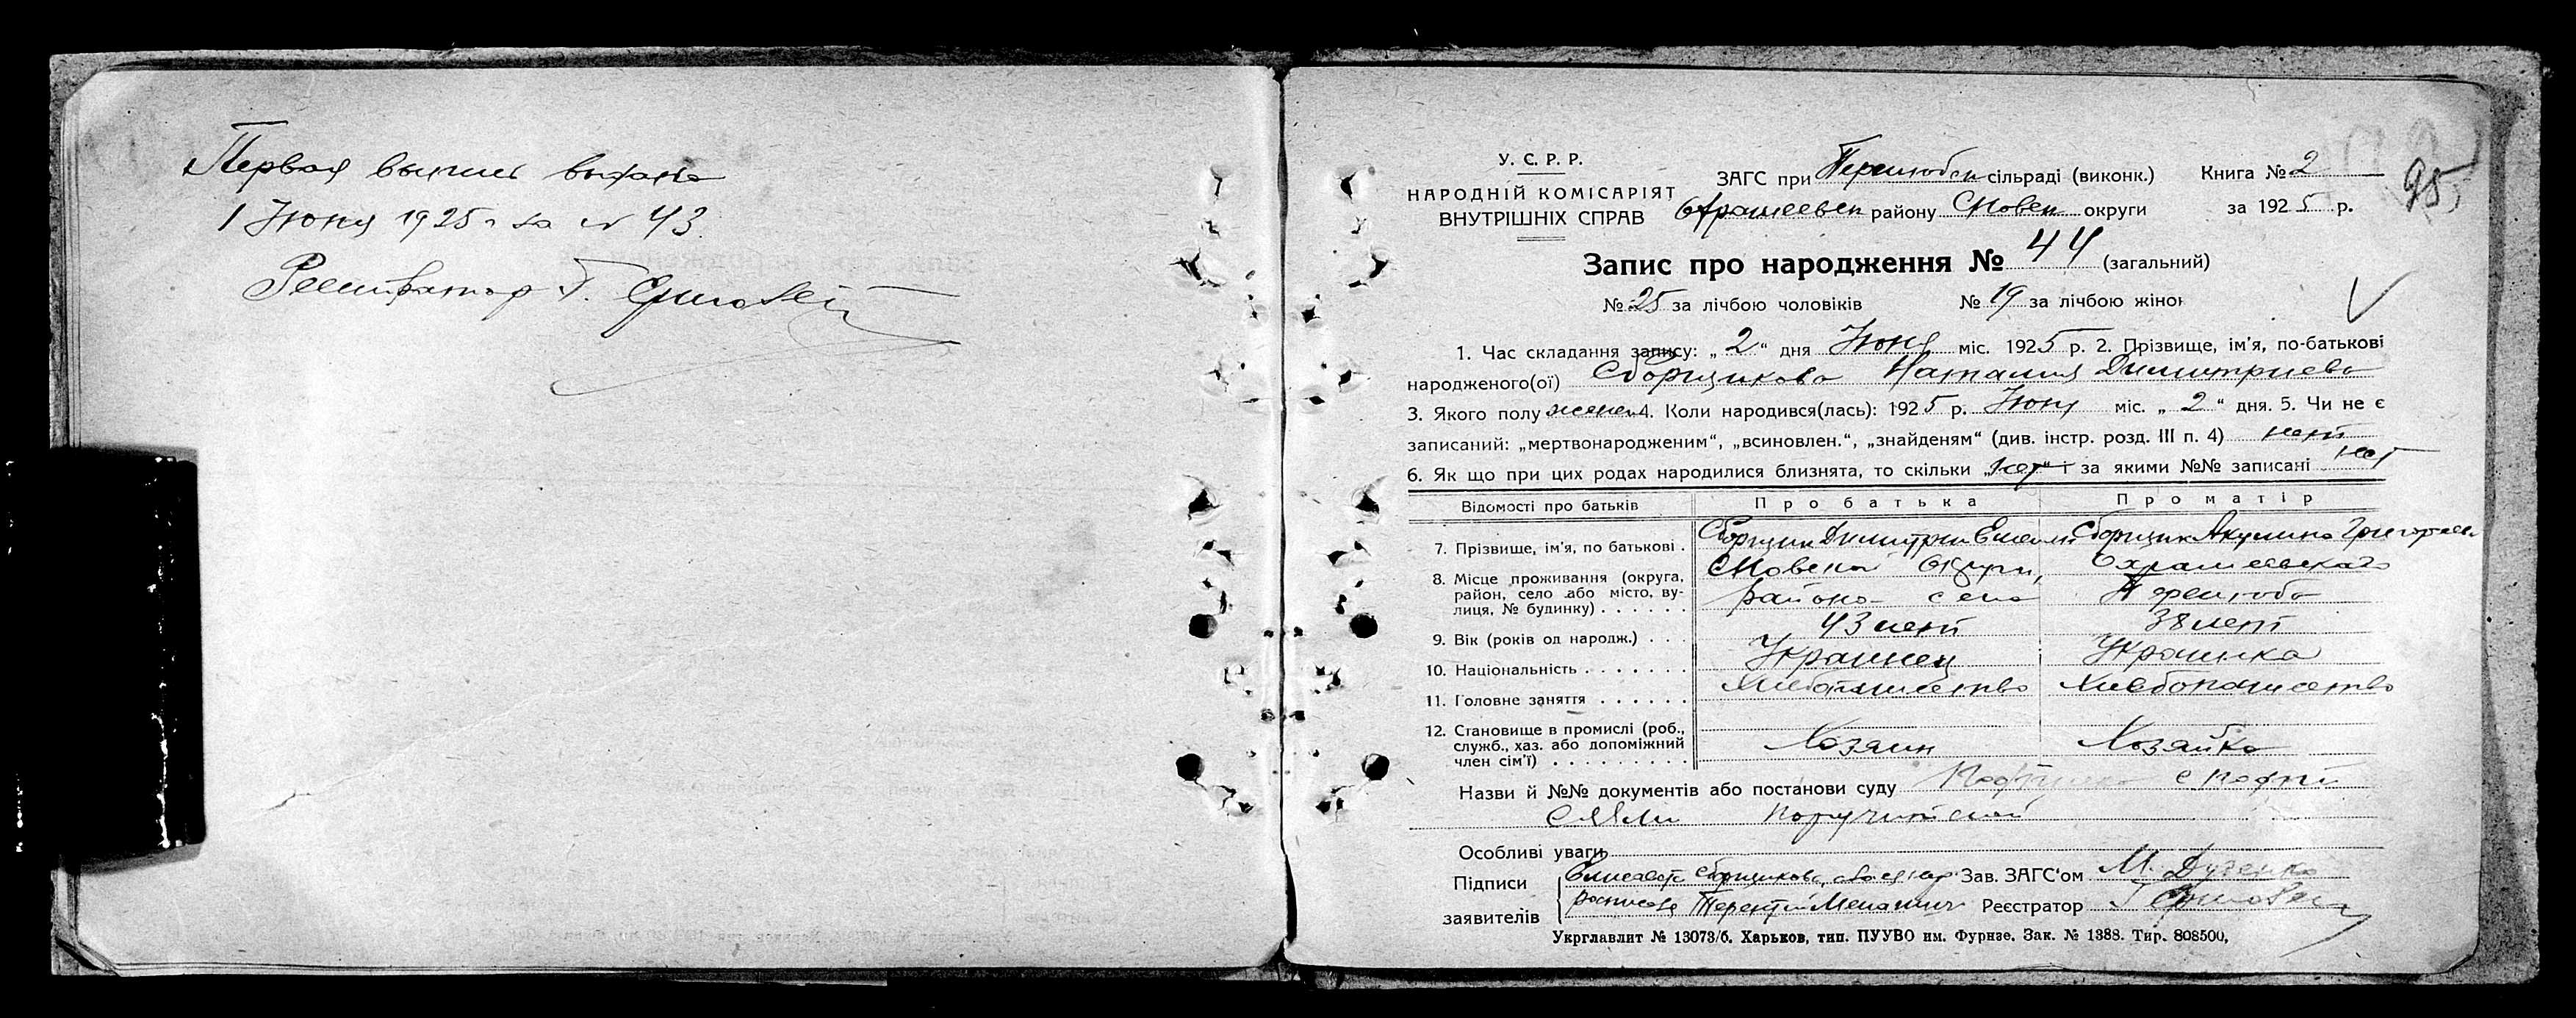 Первая выпись выдана
1 Июня 1925 г за № 43.
Регистратор Г.
У. С. Р. Р.
НАРОДНІЙ КОМІСАРІЯТ
ВНУТРІШНІХ СПРАВ
ЗАГС при Перелюбск сільраді (виконк.) Книга № 2
району Сновск округи за 1925 р.
95
Запис про народження № 44 (загальний)
№ 25 за лічбою чоловіків № 19 за лічбою жінок
1. Час складання запису: „2“ дня Июня міс. 1925 р. 2. Прізвище, ім'я, по-батькові
народженого(ої) Сборщикова Наталия Димитриева
3. Якого полу женск 4. Коли народився(лась): 1925 р. Июня міс. „2“ дня. 5. Чи не є
записаний: „мертвонародженим“, „всиновлен.“, „знайденям“ (див. інстр. розд. III п. 4) нет
6. Як що при цих родах народилися близнята, то скільки „нет“ і за якими №№ записані нет
Відомості про батьків Про батька Про матір
7. Прізвище, ім'я, по батькові . Сборщик Димитрий Сборщик Акулина Григорьев
8. Місце проживання (округа, район, село або місто, вулиця, № будинку) . . . . . . Сновской Округи,
района села Перелюба
9. Вік (років од народж.) . . . 43 лет 38 лет
10. Національність . . . . . . . Украинец Украинка
11. Головне заняття . . . . . . Хлебопашество Хлебопашество
12. Становище в промислі (роб., служб., хаз. або допоміжний член сім'ї) . . . . . . . . . Хозяин Хозяйка
Назви й №№ документів або постанови суду
Особливі уваги
Підписи заявителів Елисавета Сборщикова, Зав. ЗАГС'ом М. Дузенко
Терентий Реєстратор Г
Укрглавлит № 13073/б. Харьков, тип. ПУУВО им. Фурнзе. Зак. № 1388. Тир. 808500,